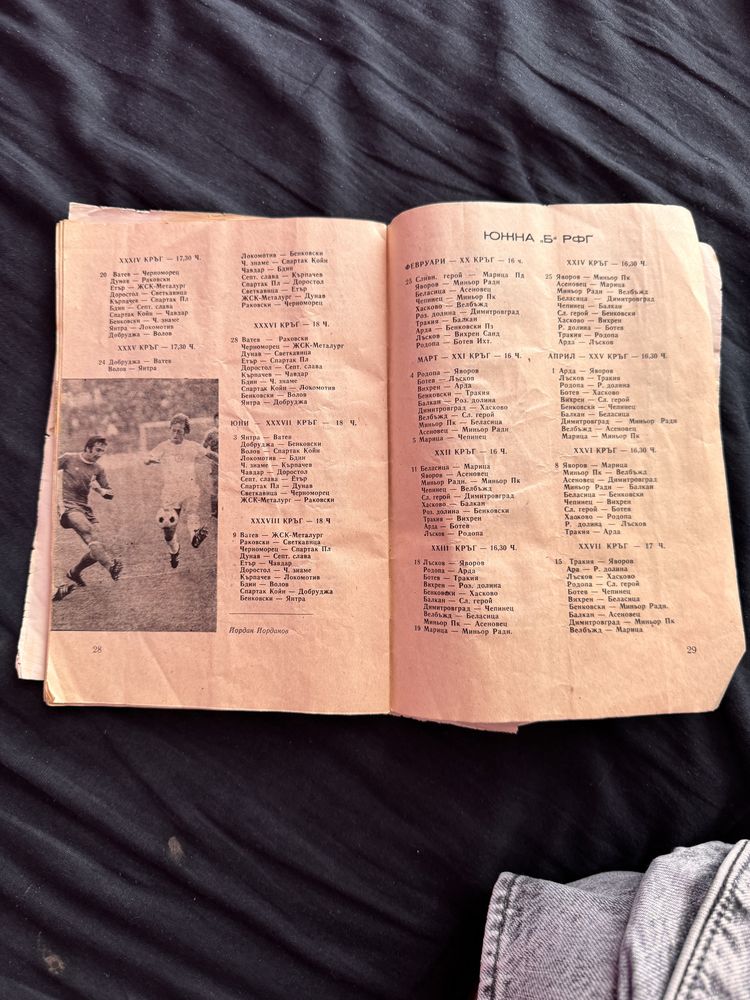 XXXIV КРЪГ — 17,30 Ч.
20 Ватев — Черноморец
Дунав — Раковски
Етър — ЖСК-Металург
Доростол — Светкавица
Кърпачев — Спартак Пл
Бдин — Септ. слава
Спартак Койн — Чавдар
Бенковски — Ч. знаме
Янтра — Локомотив
Добруджа — Волов
XXXV КРЪГ — 17,30 Ч.
24 Добруджа — Ватев
Волов — Янтра
Локомотив — Бенковски
Ч. знаме — Спартак Койн
Чавдар — Бдин
Септ. слава — Кърпачев
Спартак Пл — Доростол
Светкавица — Етър
ЖСК-Металург — Дунав
Раковски — Черноморец
XXXVI КРЪГ — 18 Ч.
28 Ватев — Раковски
Черноморец — ЖСК-Металург
Дунав — Светкавица
Етър — Спартак Пл
Доростол — Септ. слава
Кърпачев — Чавдар
Бдин — Ч. знаме
Спартак Койн — Локомотив
Бенковски — Волов
Янтра — Добруджа
ЮНИ — XXXVII КРЪГ — 18 Ч.
3 Янтра — Ватев
Добруджа — Бенковски
Волов — Спартак Койн
Локомотив — Бдин
Ч. знаме — Кърпачев
Чавдар — Доростол
Септ. слава — Етър
Спартак Пл — Дунав
Светкавица — Черноморец
ЖСК-Металург — Раковски
XXXVIII КРЪГ — 18 Ч
9 Ватев — ЖСК-Металург
Раковски — Светкавица
Черноморец — Спартак Пл
Дунав — Септ. слава
Етър — Чавдар
Доростол — Ч. знаме
Кърпачев — Локомотив
Бдин — Волов
Спартак Койн — Добруджа
Бенковски — Янтра
Йордан Йорданов
28
ЮЖНА „Б“ РФГ
ФЕВРУАРИ — XX КРЪГ — 16 ч.
25 Сливн. герой — Марица Пд
Яворов — Миньор Радн
Беласица — Асеновец
Чепинец — Миньор Пк
Хасково — Велбъжд
Роз. долина — Димитровград
Тракия — Балкан
Арда — Бенковски Пз
Лъсков — Вихрен Санд
Родопа — Ботев Ихт.
МАРТ — XXI КРЪГ — 16 Ч.
4 Родопа — Яворов
Ботев — Лъсков
Вихрен — Арда
Бенковски — Тракия
Балкан — Роз. долина
Димитровград — Хасково
Велбъжд — Сл. герой
Миньор Пк — Беласица
Асеновец — Миньор Радн
5 Марица — Чепинец
XXII КРЪГ — 16 Ч.
11 Беласица — Марица
Яворов — Асеновец
Миньор Радн. — Миньор Пк
Чепинец — Велбъжд
Сл. герой — Димитровград
Хасково — Балкан
Роз. долина — Бенковски
Тракия — Вихрен
Арда — Ботев
Лъсков — Родопа
XXIII КРЪГ — 16,30 Ч.
18 Лъсков — Яворов
Родопа — Арда
Ботев — Тракия
Вихрен — Роз. долина
Бенковски — Хасково
Балкан — Сл. герой
Димитровград — Чепинец
Велбъжд — Беласица
Миньор Пк — Асеновец
19 Марица — Миньор Радн.
XXIV КРЪГ — 16,30 Ч.
25 Яворов — Миньор Пк
Асеновец — Марица
Миньор Радн — Велбъжд
Беласица — Димитровград
Чепинец — Балкан
Сл. герой — Бенковски
Хасково — Вихрен
Р. долина — Ботев
Тракия — Родопа
Арда — Лъсков
АПРИЛ — XXV КРЪГ — 16,30 Ч.
1 Арда — Яворов
Лъсков — Тракия
Родопа — Р. долина
Ботев — Хасково
Вихрен — Сл. герой
Бенковски — Чепинец
Балкан — Беласица
Димитровград — Миньор Радн
Велбъжд — Асеновец
Марица — Миньор Пк
XXVI КРЪГ — 16,30 Ч.
8 Яворов — Марица
Миньор Пк — Велбъжд
Асеновец — Димитровград
Миньор Радн — Балкан
Беласица — Бенковски
Чепинец — Вихрен
Сл. герой — Ботев
Хасково — Родопа
Р. долина — Лъсков
Тракия — Арда
XXVII КРЪГ — 17 Ч.
15 Тракия — Яворов
Арда — Р. долина
Лъсков — Хасково
Родопа — Сл. герой
Ботев — Чепинец
Вихрен — Беласица
Бенковски — Миньор Радн.
Балкан — Асеновец
Димитровград — Миньор Пк
Велбъжд — Марица
29